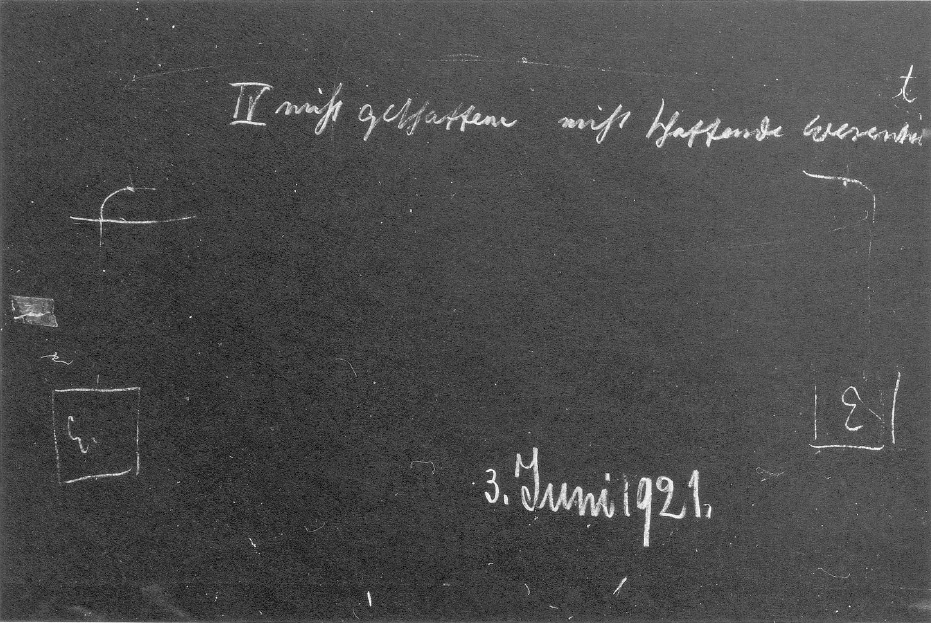 t
IV nicht geschaffene nicht schaffende Wesenhei
3. Juni 1921.